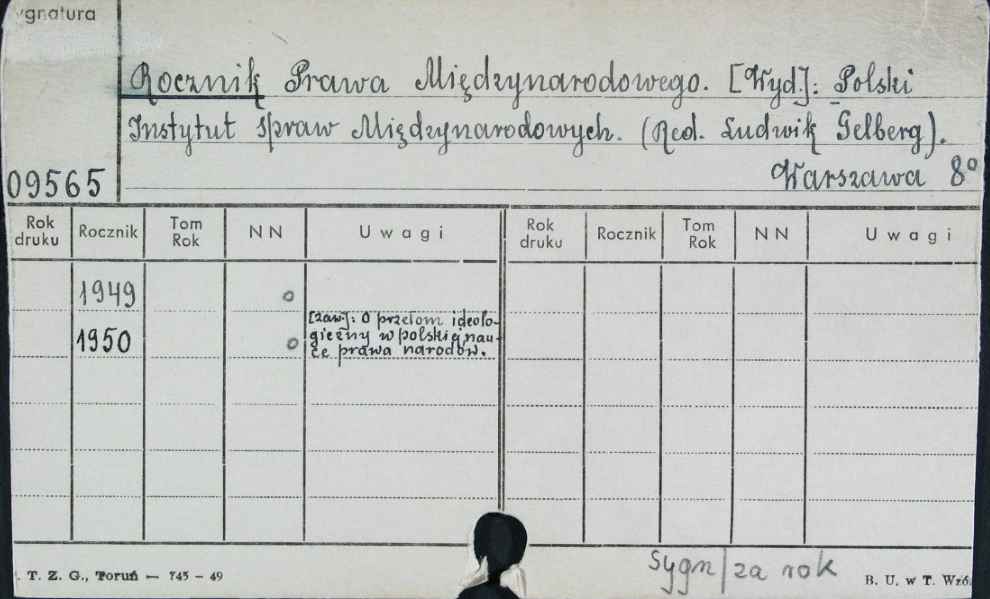 ygnatura
Rocznik Prawa Międzynarodowego. [Wyd]: Polski
Instytut Spraw Międzynarodowych. (Red. Ludwik Gelberg).
09565 Warszawa 8º
Rok druku Rocznik Tom Rok NN Uwagi Rok druku Rocznik Tom Rok NN Uwagi
1949 o
[zaw]: O przełom ideolo-
1950 o giczny w polskiej nau-
ce prawa narodów.
Sygn/za rok
. T. Z. G., Toruń — 745 – 49 B. U. w T. Wzó